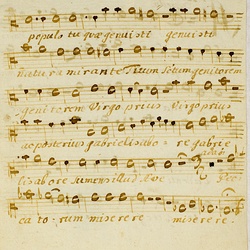 populo tu quæ genuisti genuisti
natura mirante Tuum Sctum genitorem
genitorem Virgo prius Virgo prius
ac posterius gabrielis ab o re gabrie
lis ab ore Sumens illud Ave Pec
ca to rum miserere miserere